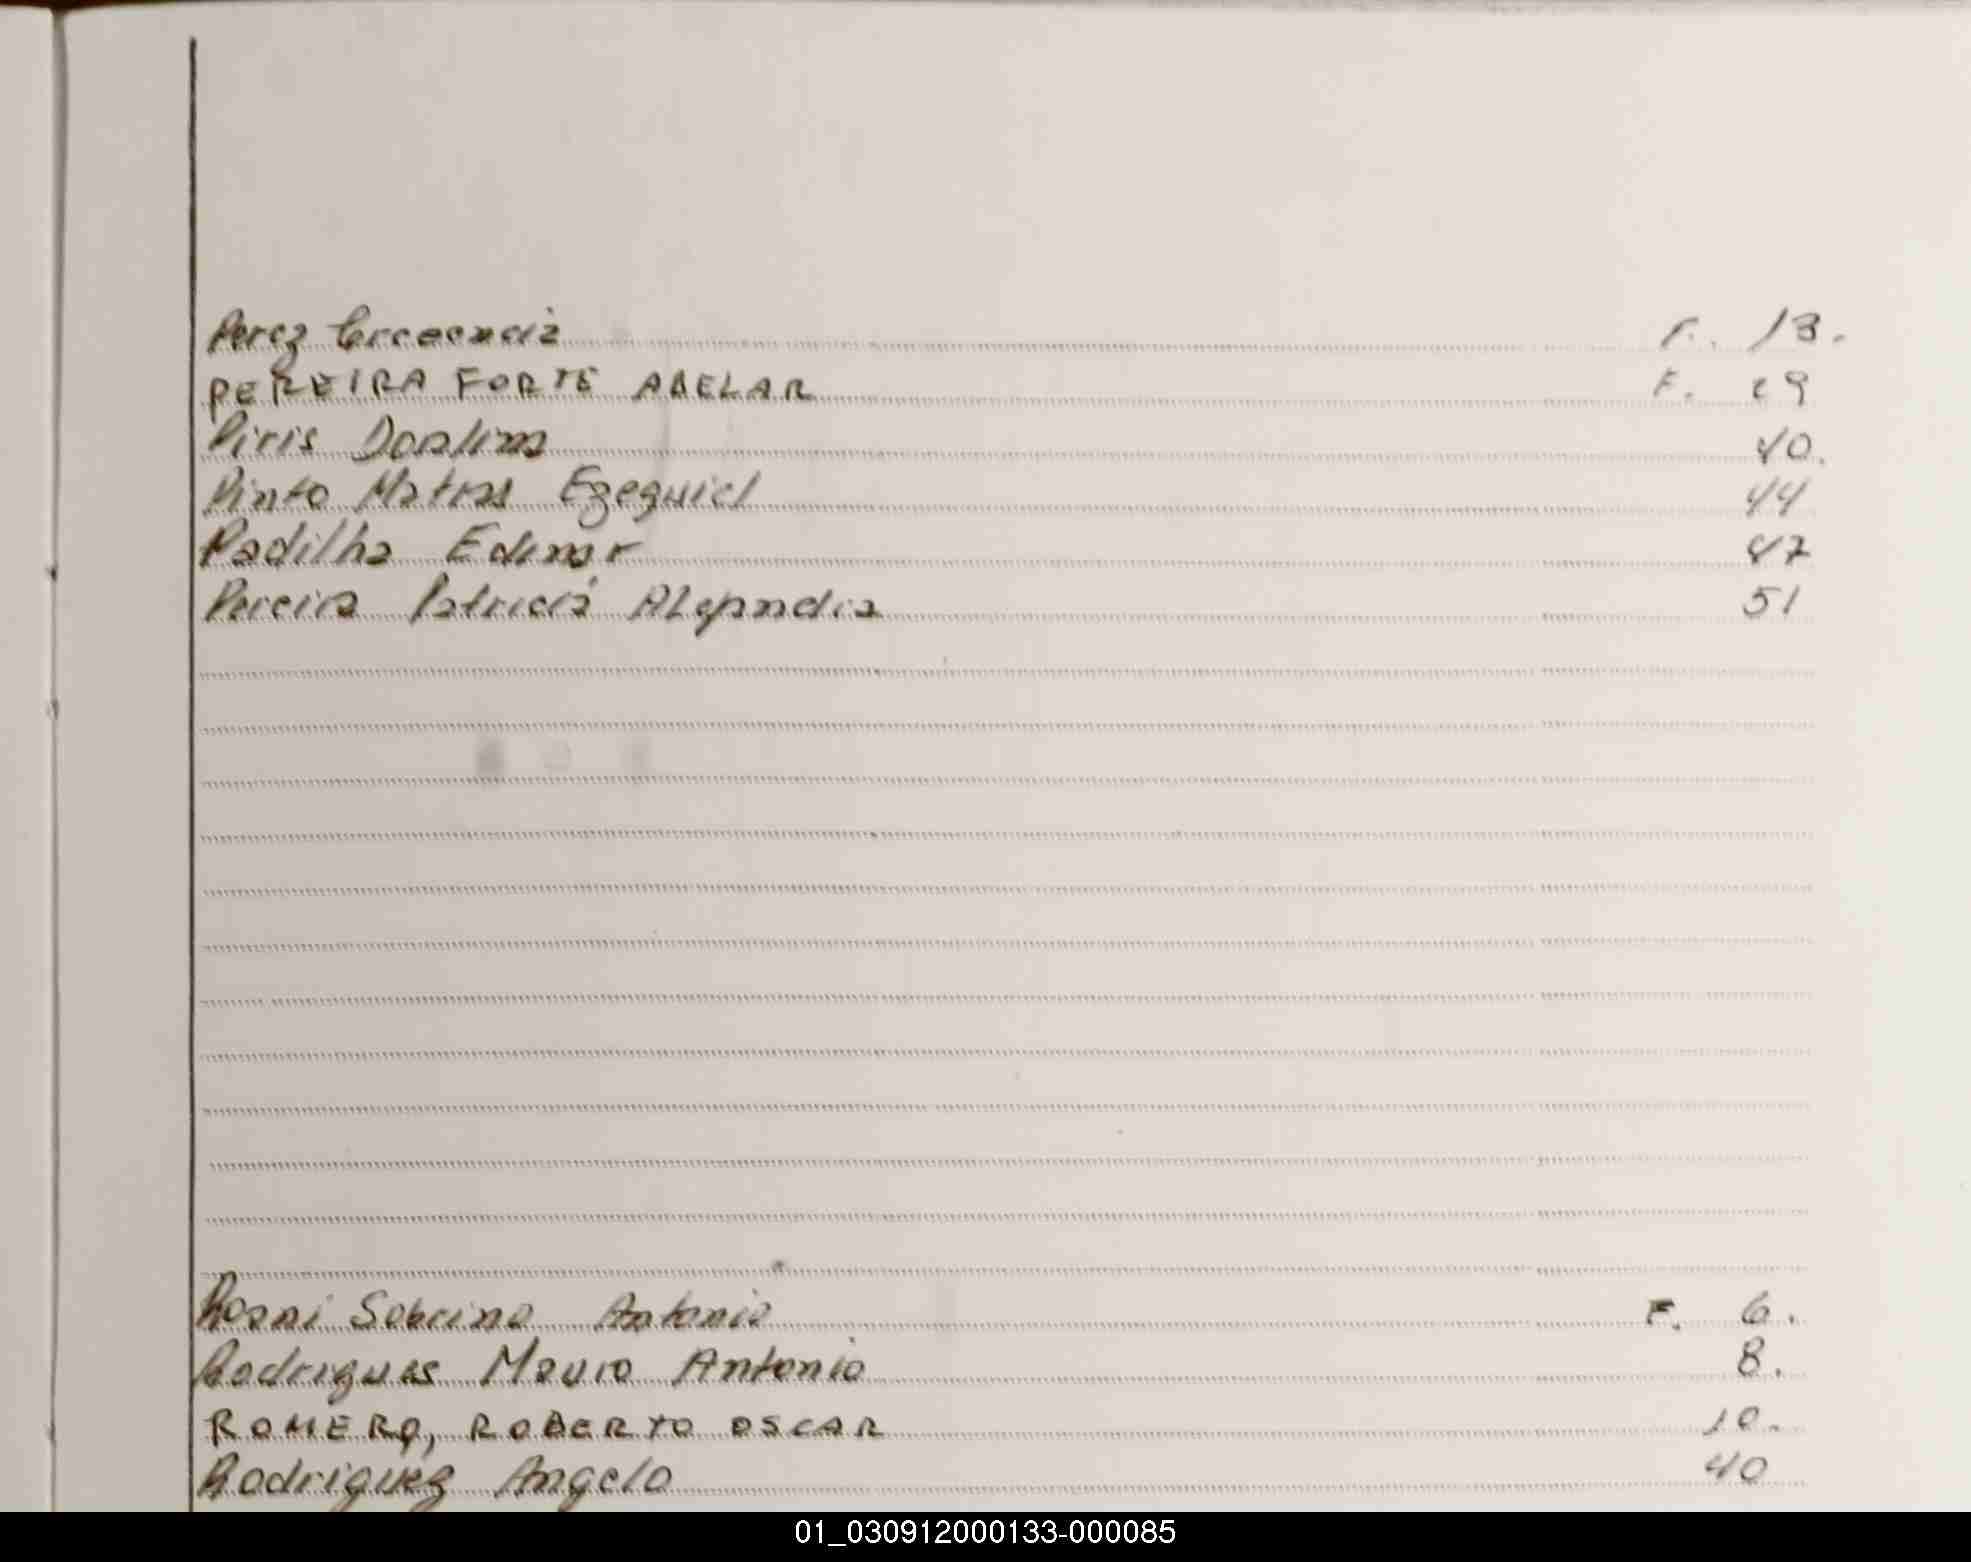 Perez F. 13.
PEREIRA FORTE ABELAR F. 29
Piris 40.
Pinto Matias Ezequiel 44
Padilha Edimar 47
Pereira Patricia Alejandra 51
Sobrino Antonio F. 6.
Rodrigues Mauro Antonio 8.
ROMERO, ROBERTO OSCAR 10.
Rodriguez Angelo 40
01_030912000133-000085